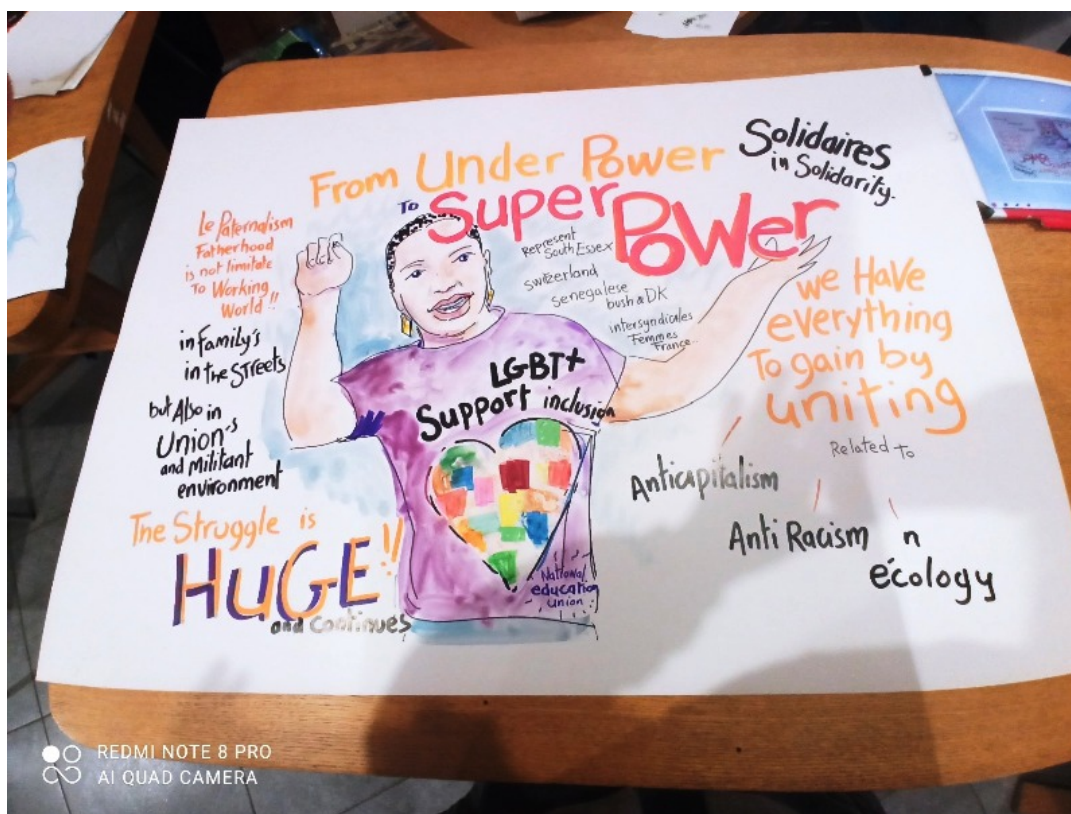 From Under Power
To Super
Power
Solidaires
in Solidarity.
Le Paternalism
Fatherhood
is not limitate
To Working
World!!
in Family's
in the Streets
but Also in
Union's
and militant
environment
The Struggle is
HUGE!!
and continues
Represent
South Essex
switzerland
senegalese
bush & DK
intersyndicales
Femmes
France..
LGBT+
Support inclusion
National
education
union
we Have
everything
To gain by
uniting
Related to
Anticapitalism
Anti Racism n
écology
REDMI NOTE 8 PRO
AI QUAD CAMERA